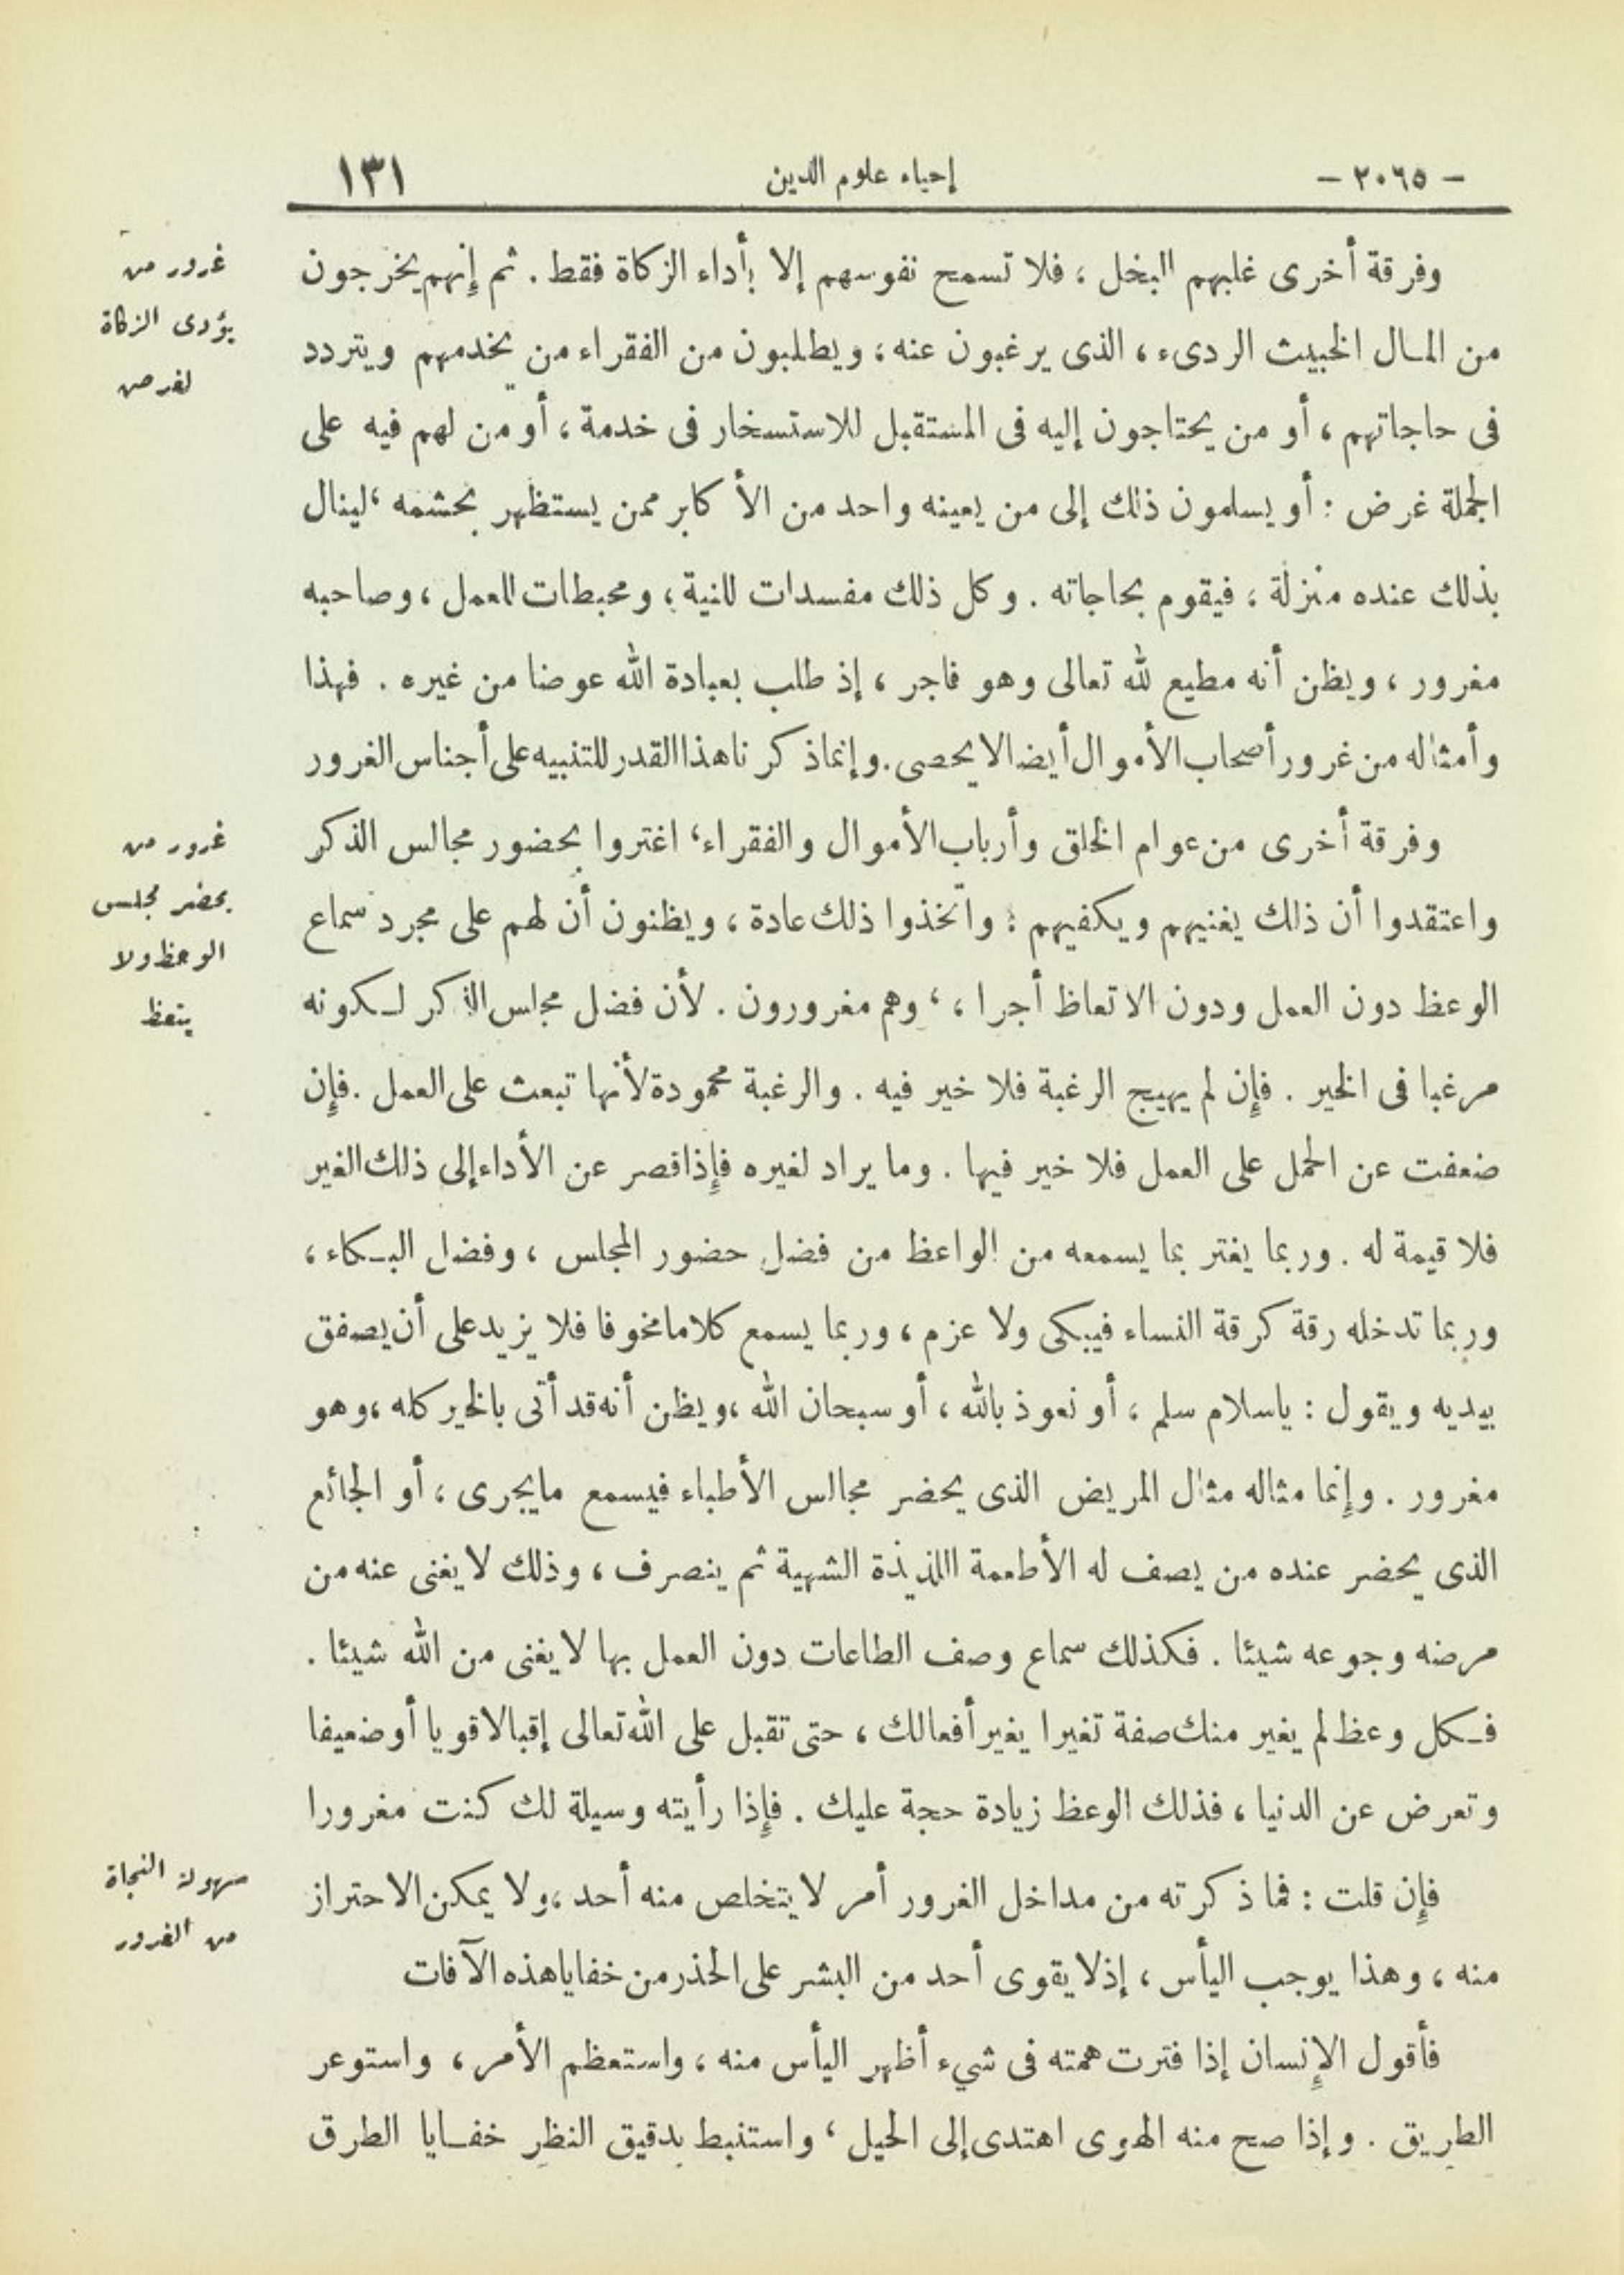 - ٢٠٦٥ -
إحياء علوم الدين
١٣١
وفرقة أخرى غلبهم البخل ، فلا تسمح نفوسهم إلا بأداء الزكاة فقط . ثم إنهم يخرجون
من المال الخبيث الردىء ، الذى يرغبون عنه ، ويطلبون من الفقراء من يخدمهم ويتردد
فى حاجاتهم ، أو من يحتاجون إليه فى المستقبل للاستسخار فى خدمة ، أو من لهم فيه على
الجملة غرض : أو يسلمون ذلك إلى من يعينه واحد من الأكابر ممن يستظهر بحشمه ، لينال
بذلك عنده منزلة ، فيقوم بحاجاته . وكل ذلك مفسدات للنية ، ومحبطات للعمل ، وصاحبه
مغرور ، ويظن أنه مطيع لله تعالى وهو فاجر ، إذ طلب بعبادة الله عوضا من غيره . فهذا
وأمثاله من غرور أصحاب الأموال أيضا لا يحصى . وإنما ذكرنا هذا القدر للتنبيه على أجناس الغرور
وفرقة أخرى من عوام الخلق وأرباب الأموال والفقراء ، اغتروا بحضور مجالس الذكر
واعتقدوا أن ذلك يغنيهم ويكفيهم : واتخذوا ذلك عادة ، ويظنون أن لهم على مجرد سماع
الوعظ دون العمل ودون الاتعاظ أجرا ، ، وهم مغرورون . لأن فضل مجلس الذكر لكونه
مرغبا فى الخير . فإن لم يهيج الرغبة فلا خير فيه . والرغبة محمودة لأنها تبعث على العمل . فإن
ضعفت عن الحمل على العمل فلا خير فيها . وما يراد لغيره فإذا قصر عن الأداء إلى ذلك الغير
فلا قيمة له . وربما يغتر بما يسمعه من الواعظ من فضل حضور المجلس ، وفضل البكاء ،
وربما تدخله رقة كرقة النساء فيبكى ولا عزم ، وربما يسمع كلاما مخوفا فلا يزيد على أن يصفق
بيديه ويقول : ياسلام سلم ، أو نعوذ بالله ، أو سبحان الله ، ويظن أنه قد أتى بالخير كله ، وهو
مغرور . وإنما مثاله مثال المريض الذى يحضر مجالس الأطباء فيسمع مايجرى ، أو الجائع
الذى يحضر عنده من يصف له الأطعمة اللذيذة الشهية ثم ينصرف ، وذلك لا يغنى عنه من
مرضه وجوعه شيئا . فكذلك سماع وصف الطاعات دون العمل بها لا يغنى من الله شيئا .
فكل وعظ لم يغير منك صفة تغيرا يغير أفعالك ، حتى تقبل على الله تعالى إقبالا قويا أو ضعيفا
وتعرض عن الدنيا ، فذلك الوعظ زيادة حجة عليك . فإذا رأيته وسيلة لك كنت مغرورا
فإن قلت : فما ذكرته من مداخل الغرور أمر لا يتخلص منه أحد ، ولا يمكن الاحتراز
منه ، وهذا يوجب اليأس ، إذ لا يقوى أحد من البشر على الحذر من خفايا هذه الآفات
فأقول الإنسان إذا فترت همته فى شيء أظهر اليأس منه ، واستعظم الأمر ، واستوعر
الطريق . وإذا صح منه الهوى اهتدى إلى الحيل ، واستنبط بدقيق النظر خفايا الطرق
غرور من
يؤدى الزكاة
لغرض
غرور من
يحضر مجلس
الوعظ ولا
يتعظ
سهولة النجاة
من الغرور